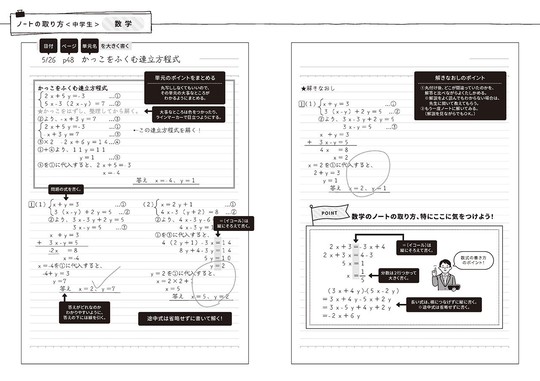 ノートの取り方<中学生> 数学
日付 ページ 単元名 を大きく書く
5/26 p48 かっこをふくむ連立方程式
単元のポイントをまとめる
丸写ししなくてもいいので、
その単元の大事なところが
わかるようにまとめる。
かっこをふくむ連立方程式
2x+5y=-3 …①
5x-3(2x-y)=7 …②
★かっこをはずし、整理してから解く。
②より、-x+3y=7
大事なところは色をつかったり、
ラインマーカーで目立つようにする。
2x+5y=-3 …①
-x+3y=7 …③
←この連立方程式を解く!
③×2 -2x+6y=14…④
①+④より、11y=11
y=1 …⑤
⑤を①に代入すると、2x+5=-3
x=-4
答え x=-4, y=1
問題の式を書く。
1(1) x+y=3 …①
3(x-y)+2y=5 …②
②より、3x-3y+2y=5
3x-y=5 …③
x+y=3
+ 3x-y=5
2x =8
x=4
x=4を①に代入すると、
4+y=3
y=7
答え x=2, y=7
答えがどれなのか
わかりやすいように、
答えの下には線を引く。
(2) x=2y+1 …①
4x-3(y+2)=8 …②
②より、4x-3y-6
4x-3y=
=(イコール)は
縦にそろえて書く。
①を③に代入すると、
4(2y+1)-3y=14
8y+4-3y=14
5y=10
y=2
y=2を①に代入すると、
x=2×2+
x=5
答え x=5, y=2
途中式は省略せずに書いて解く!
解きなおしのポイント
①丸付け後、どこが間違っていたのかを、
解答と比べながらよくたしかめる。
※解説をよく読んでもわからない場合は、
先生に聞いて教えてもらう。
②もう一度ノートに解いてみる。
(解説を見ながらでもOK。)
★解きなおし
1(1) x+y=3 …①
3(x-y)+2y=5 …②
②より、3x-3y+2y=5
3x-y=5 …③
x+y=3
+ 3x-y=5
4x =8
x=2
x=2を①に代入すると、
2+y=3
y=1
答え x=2, y=1
POINT
数学のノートの取り方、特にここに気をつけよう!
2x+3=-3x+4
2x+3x=4-3
5x=1
x=1/5
=(イコール)は
縦にそろえて書く。
分数は2行つかって
大きく書く。
数式の書き方
のポイント!
(3x+4y)-(5x-2y)
=3x+4y-5x+2y
=3x-5x+4y+2y
=-2x+6y
長い式は、横につなげずに縦に書く。
※途中式は省略せずに書く。